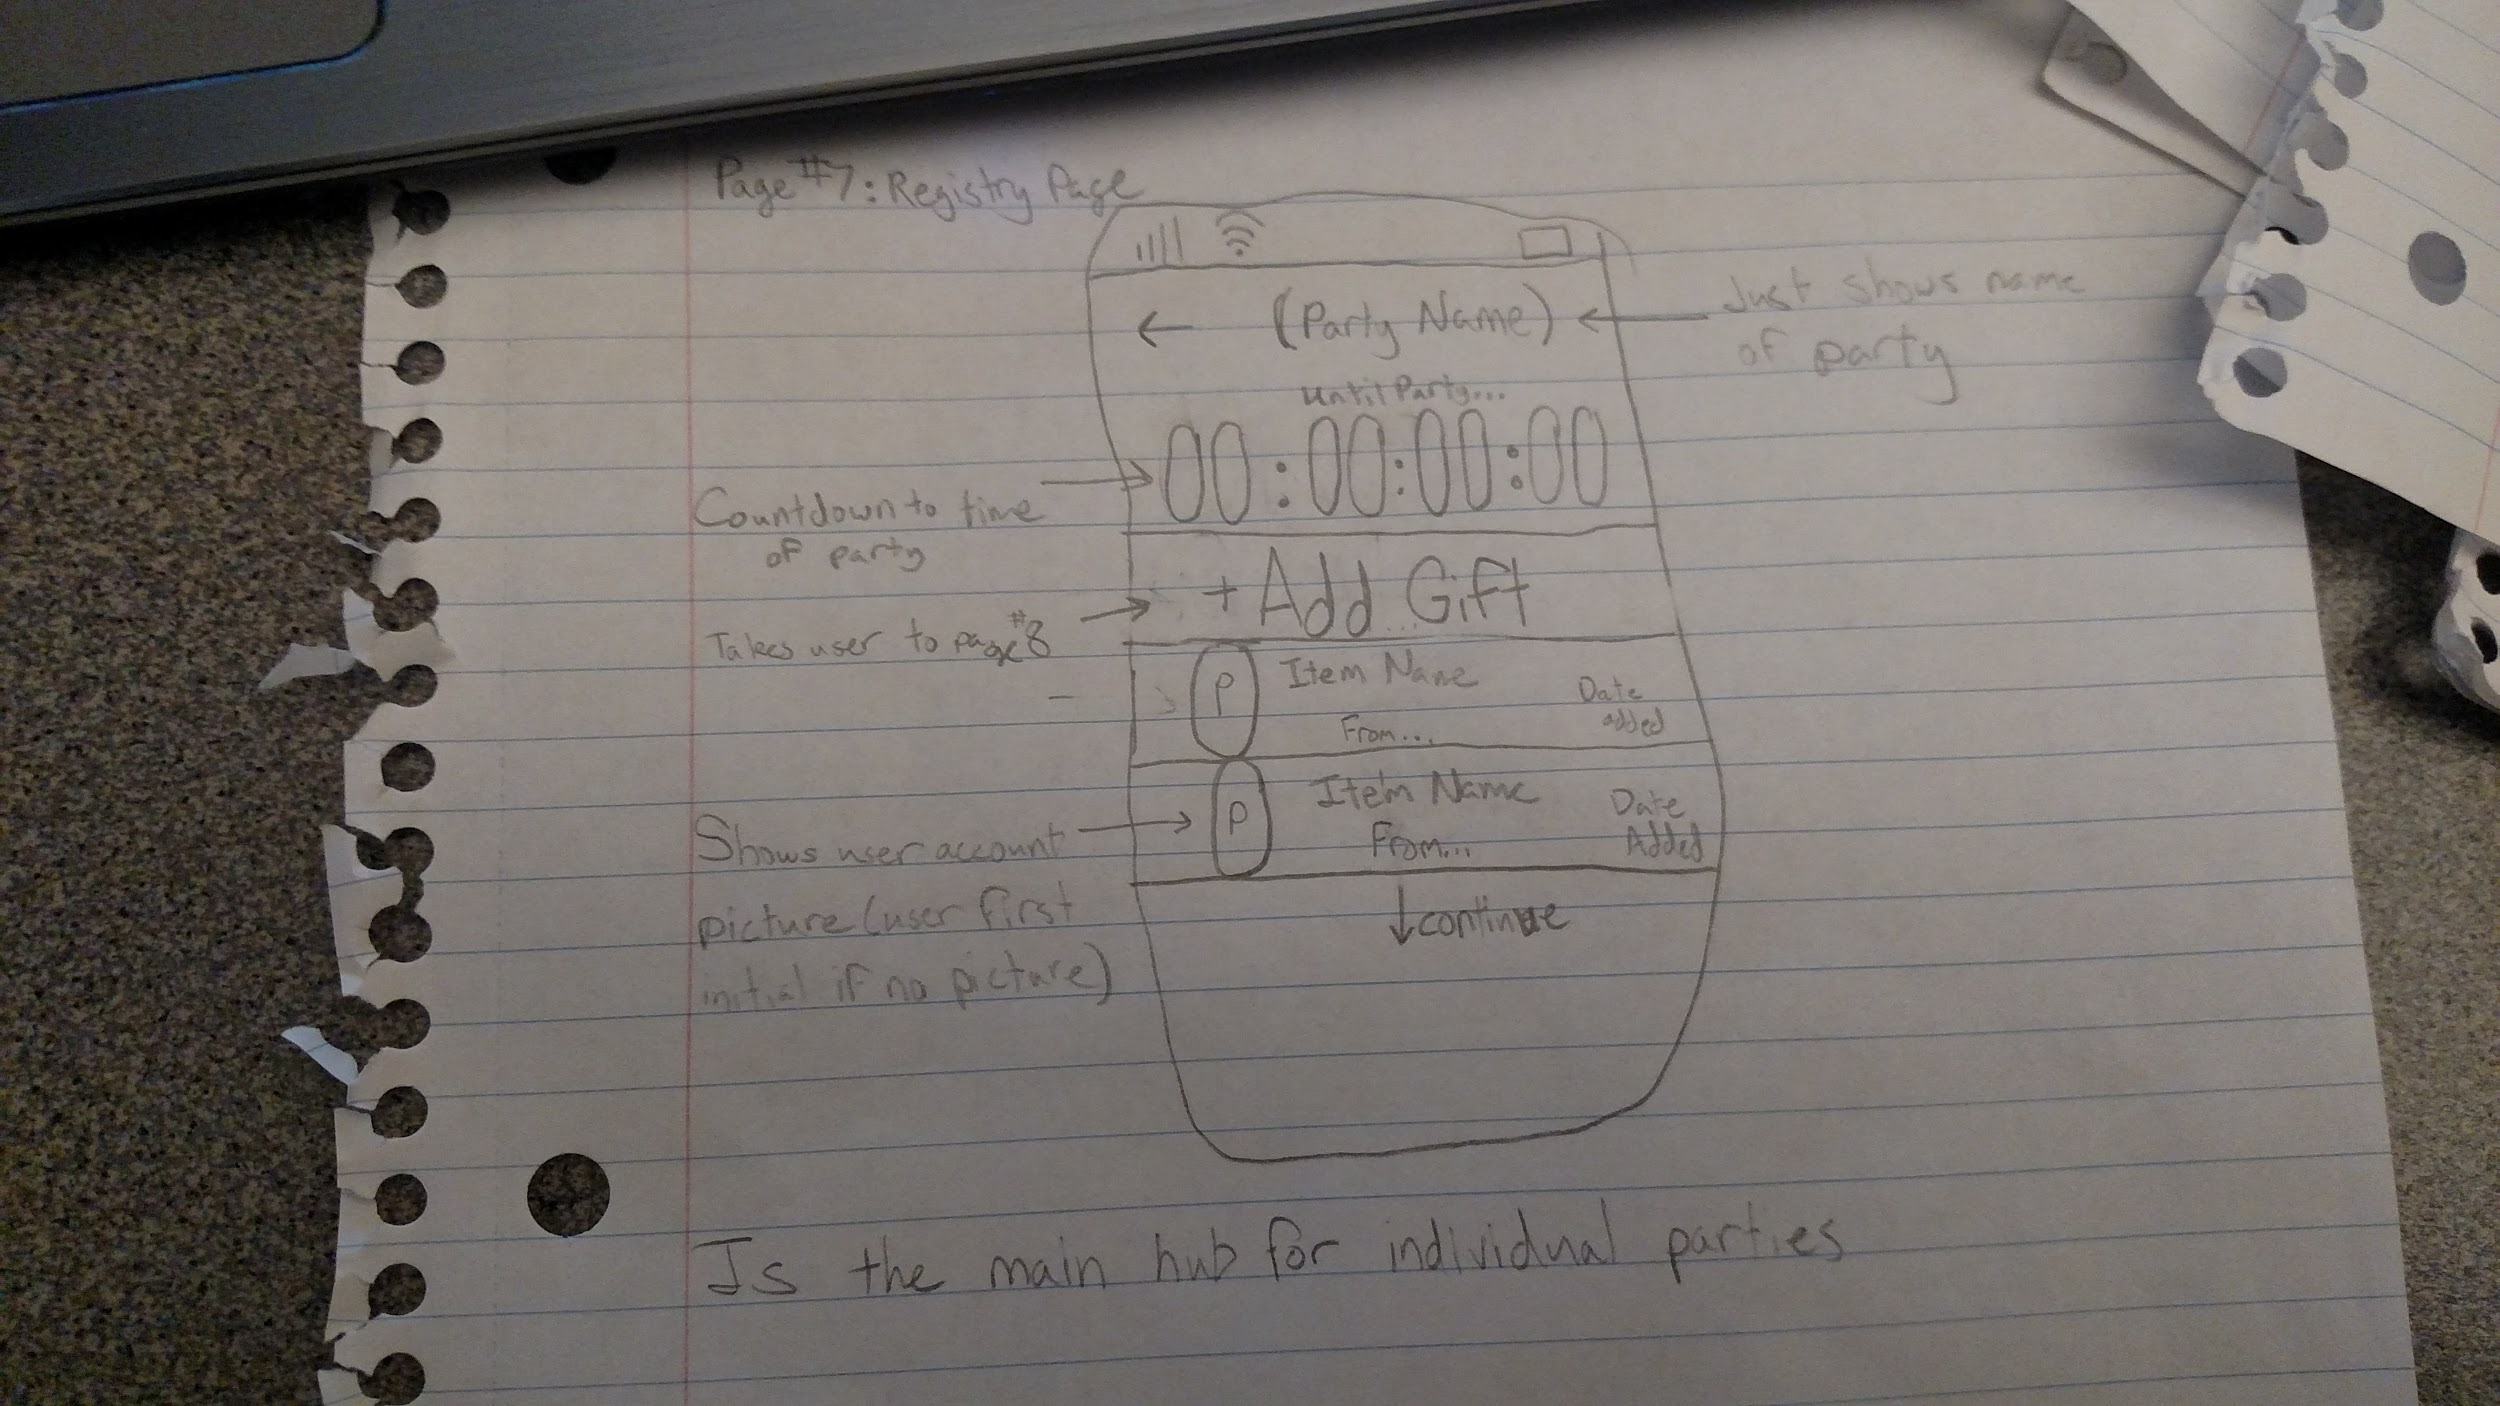 Page #7: Registry Page
← (Party Name)
Just shows name
of party
Until Party...
00:00:00:00
Countdown to time
of party
+ Add Gift
Takes user to page #8
P Item Name
Date
added
From...
P Item Name
Date
Added
From...
Shows user account
picture (user first
initial if no picture)
↓ continue
Is the main hub for individual parties